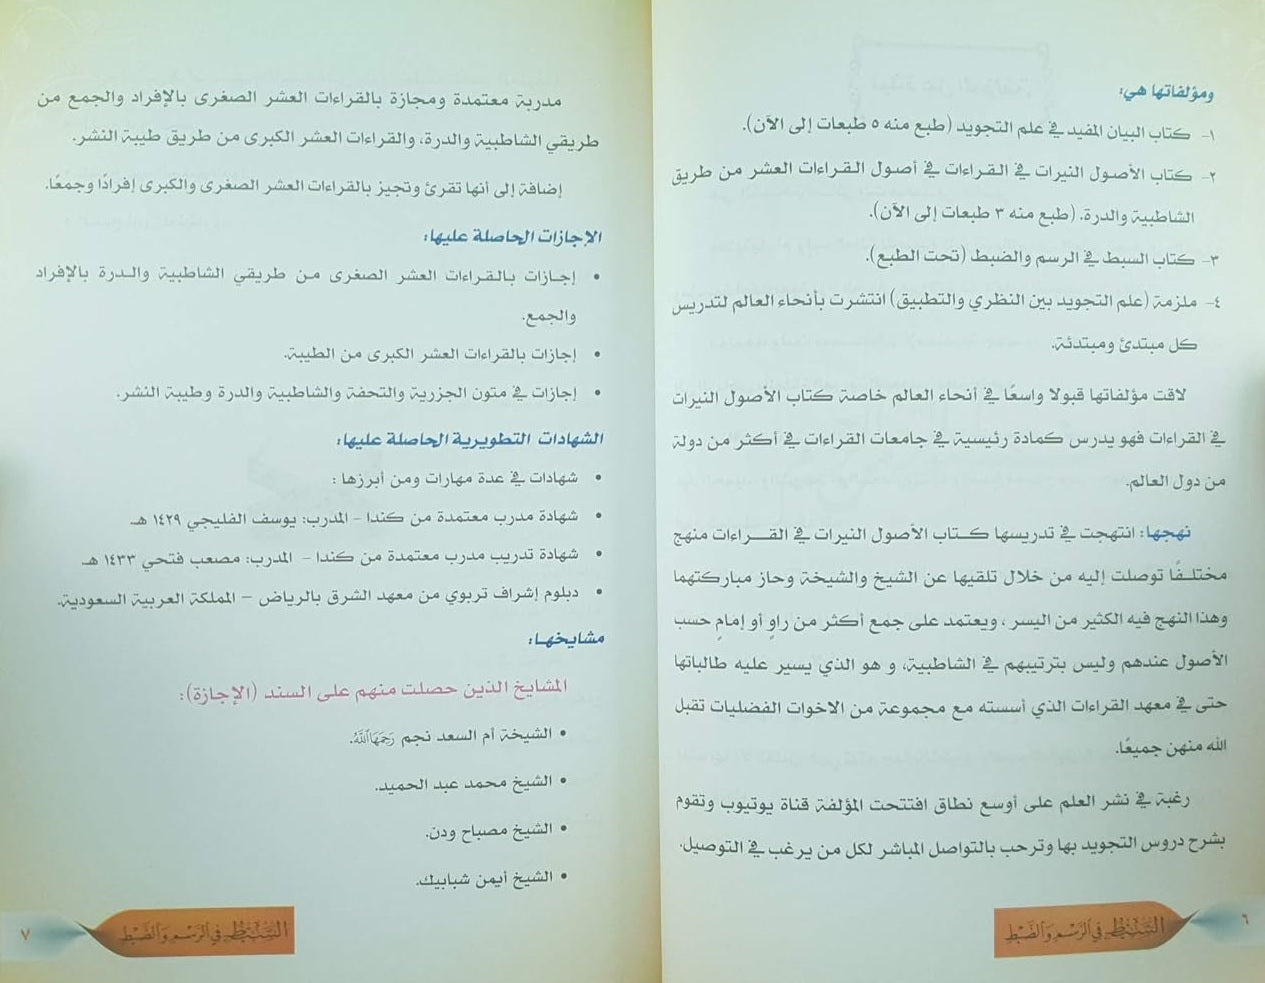 ومؤلفاتها هي:
١- كتاب البيان المفيد في علم التجويد (طبع منه ٥ طبعات إلى الآن).
٢- كتاب الأصول النيرات في القراءات في أصول القراءات العشر من طريق
الشاطبية والدرة. (طبع منه ٣ طبعات إلى الآن).
٣- كتاب السبط في الرسم والضبط (تحت الطبع).
٤- ملزمة (علم التجويد بين النظري والتطبيق) انتشرت بأنحاء العالم لتدريس
كل مبتدئ ومبتدئة.
لاقت مؤلفاتها قبولا واسعًا في أنحاء العالم خاصة كتاب الأصول النيرات
في القراءات فهو يدرس كمادة رئيسية في جامعات القراءات في أكثر من دولة
من دول العالم.
نهجها: انتهجت في تدريسها كتاب الأصول النيرات في القراءات منهج
مختلفًا توصلت إليه من خلال تلقيها عن الشيخ والشيخة وحاز مباركتهما
وهذا النهج فيه الكثير من اليسر، ويعتمد على جمع أكثر من راوٍ أو إمامٍ حسب
الأصول عندهم وليس بترتيبهم في الشاطبية، و هو الذي يسير عليه طالباتها
حتى في معهد القراءات الذي أسسته مع مجموعة من الاخوات الفضليات تقبل
الله منهن جميعًا.
رغبة في نشر العلم على أوسع نطاق افتتحت المؤلفة قناة يوتيوب وتقوم
بشرح دروس التجويد بها وترحب بالتواصل المباشر لكل من يرغب في التوصيل.
السبط في الرسم والضبط
٦
مدربة معتمدة ومجازة بالقراءات العشر الصغرى بالإفراد والجمع من
طريقي الشاطبية والدرة، والقراءات العشر الكبرى من طريق طيبة النشر.
إضافة إلى أنها تقرئ وتجيز بالقراءات العشر الصغرى والكبرى إفرادًا وجمعًا.
الإجازات الحاصلة عليها:
• إجازات بالقراءات العشر الصغرى من طريقي الشاطبية والدرة بالإفراد
والجمع.
• إجازات بالقراءات العشر الكبرى من الطيبة.
• إجازات في متون الجزرية والتحفة والشاطبية والدرة وطيبة النشر.
الشهادات التطويرية الحاصلة عليها:
• شهادات في عدة مهارات ومن أبرزها :
• شهادة مدرب معتمدة من كندا – المدرب: يوسف الفليجي ١٤٢٩ هـ
• شهادة تدريب مدرب معتمدة من كندا – المدرب: مصعب فتحي ١٤٣٣ هـ
• دبلوم إشراف تربوي من معهد الشرق بالرياض – المملكة العربية السعودية.
مشايخها:
المشايخ الذين حصلت منهم على السند (الإجازة):
• الشيخة أم السعد نجم رَحِمَهَا ٱللَّهُ.
• الشيخ محمد عبد الحميد.
• الشيخ مصباح ودن.
• الشيخ أيمن شبابيك.
السبط في الرسم والضبط
٧